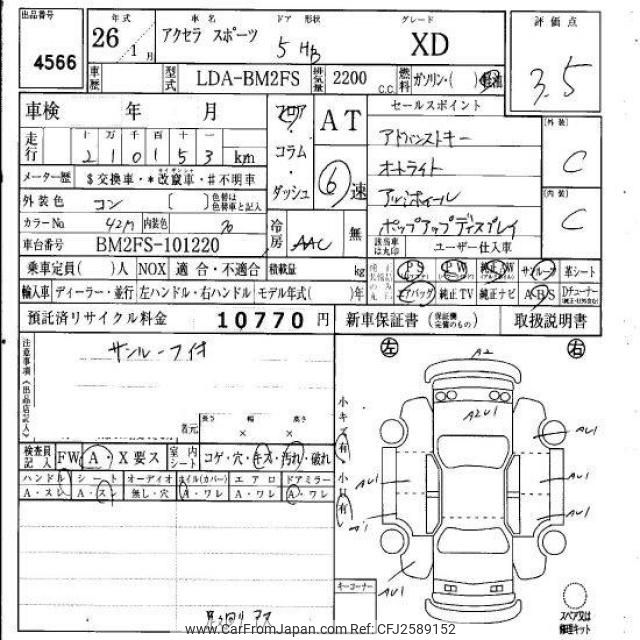 出品番号 年式 車名 ドア 形状 グレード 評価点
4566 26年 1月 アクセラ スポーツ 5 HB XD 3.5
車歴 型式 LDA-BM2FS 排気量 2200 C.C. 燃料 ガソリン・( ) 軽油
車検 年 月 フロア・コラム・ダッシュ AT 6速 セールスポイント [外装] C
走行 十万千百十一
210153 km アドバンストキー
メーター歴 $交換車・*改竄車・#不明車 オートライト
外装色 コン [ ] 色替は色替車と記入 アルミホイール [内装] C
カラーNo 42M 内装色 冷房 AAC 無 ポップアップディスプレイ
車台番号 BM2FS-101220 該当車は丸印 ユーザー仕入車
乗車定員( )人 NOX 適合・不適合 積載量 kg PS PW 純正AW サンルーフ 革シート
輸入車 ディーラー・並行 左ハンドル・右ハンドル モデル年式( )年 エアバッグ 純正TV 純正ナビ ABS
預託済リサイクル料金 10770円 新車保証書 (保証書完備のもの) 取扱説明書
注意事項(出品店記入) サンルーフ付 左 右
A2
A2U1
小キズ 有 AU1
諸元 長さ × 幅 × 高さ
検査員記入 FW A・X要ス 室内シート コゲ・穴・キズ・汚れ・破れ 小凹 有 AU1 AU1
ハンドル シート オーディオ ホイル(カバー) エアロ ドアミラー
A・スレ A・スレ 無し・穴 A・ワレ A・ワレ A・ワレ A1 AU1
AU1
キーコーナー
スペア又は修理キット
www.CarFromJapan.com Ref:CFJ2589152